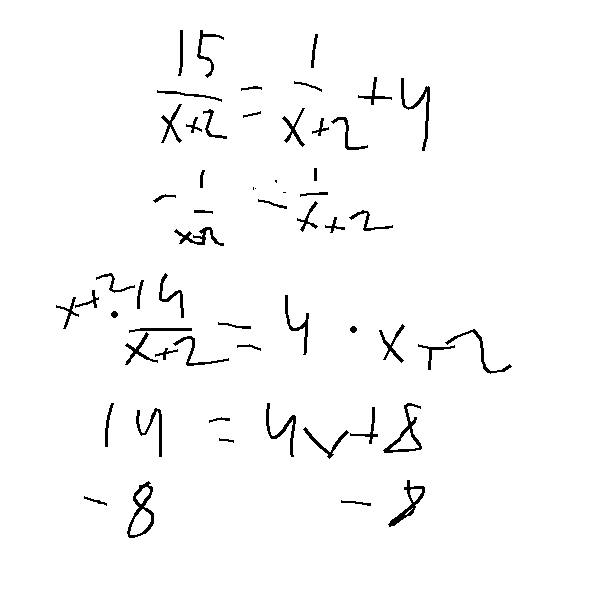 15/(x+2) = 1/(x+2) + 4
- 1/(x+2) - 1/(x+2)
x+2 · 14/(x+2) = 4 · x+2
14 = 4x+8
-8 -8